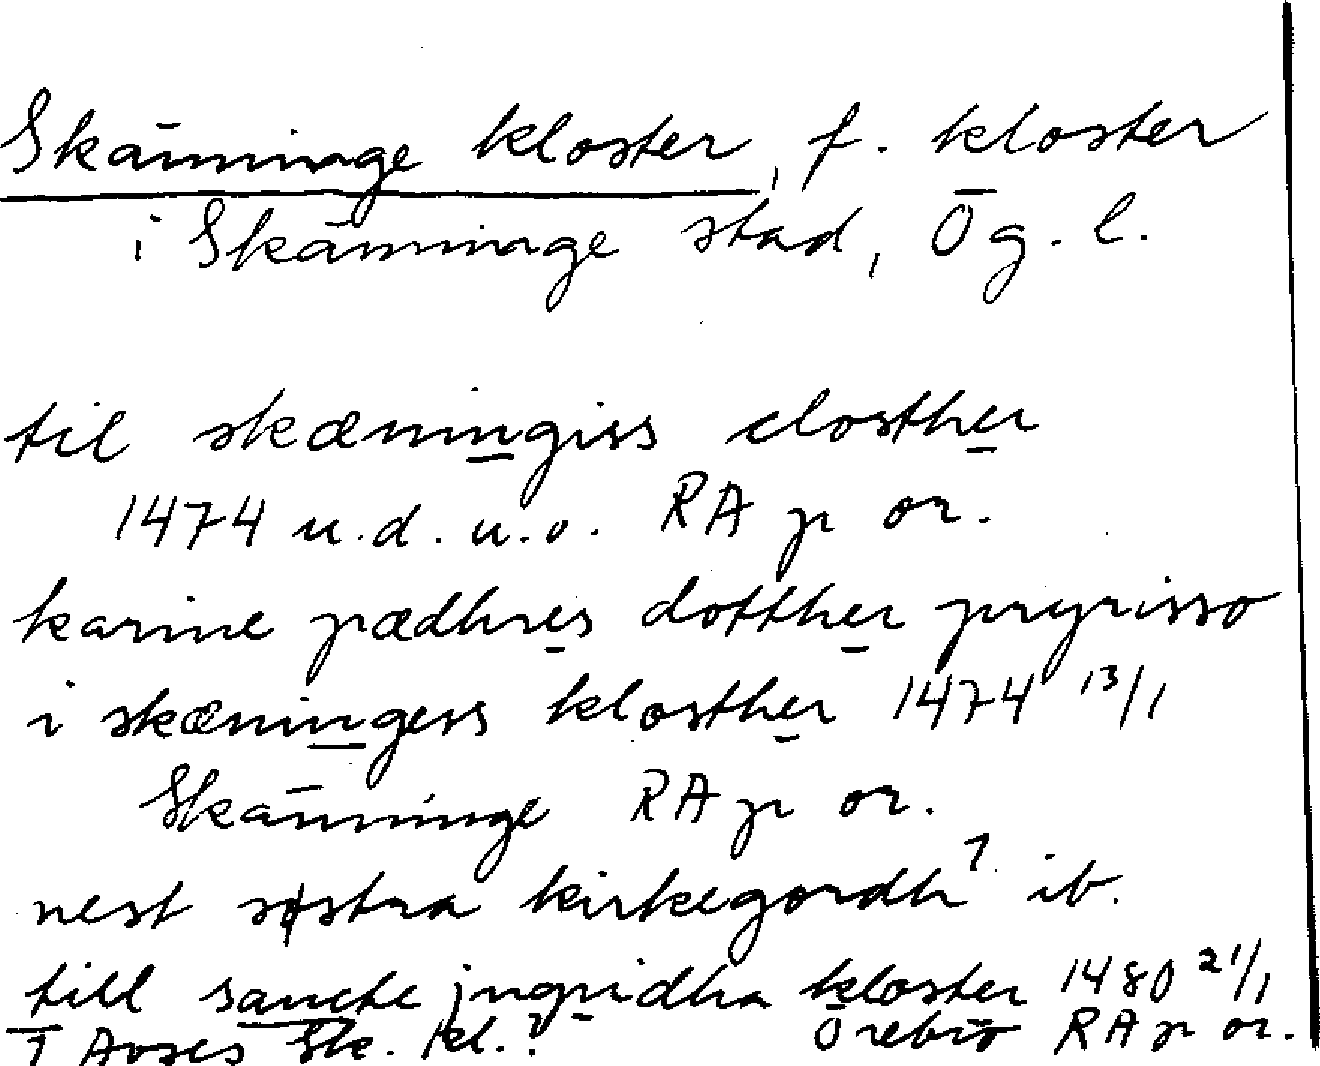 Skänninge kloster, f. kloster
i Skänninge stad, Ög. l.
til skæningiss closther
1474 u.d. u.o. RA p or.
karine pædhres dotther pryrisso
i skæningess klosther 1474 13/1
Skänninge RA p or.
nest søstra kirkegordh 1 ib.
till sancte jngridha kloster 1480 21/1
Örebro RA p or.
1 Avses Sk. kl.?